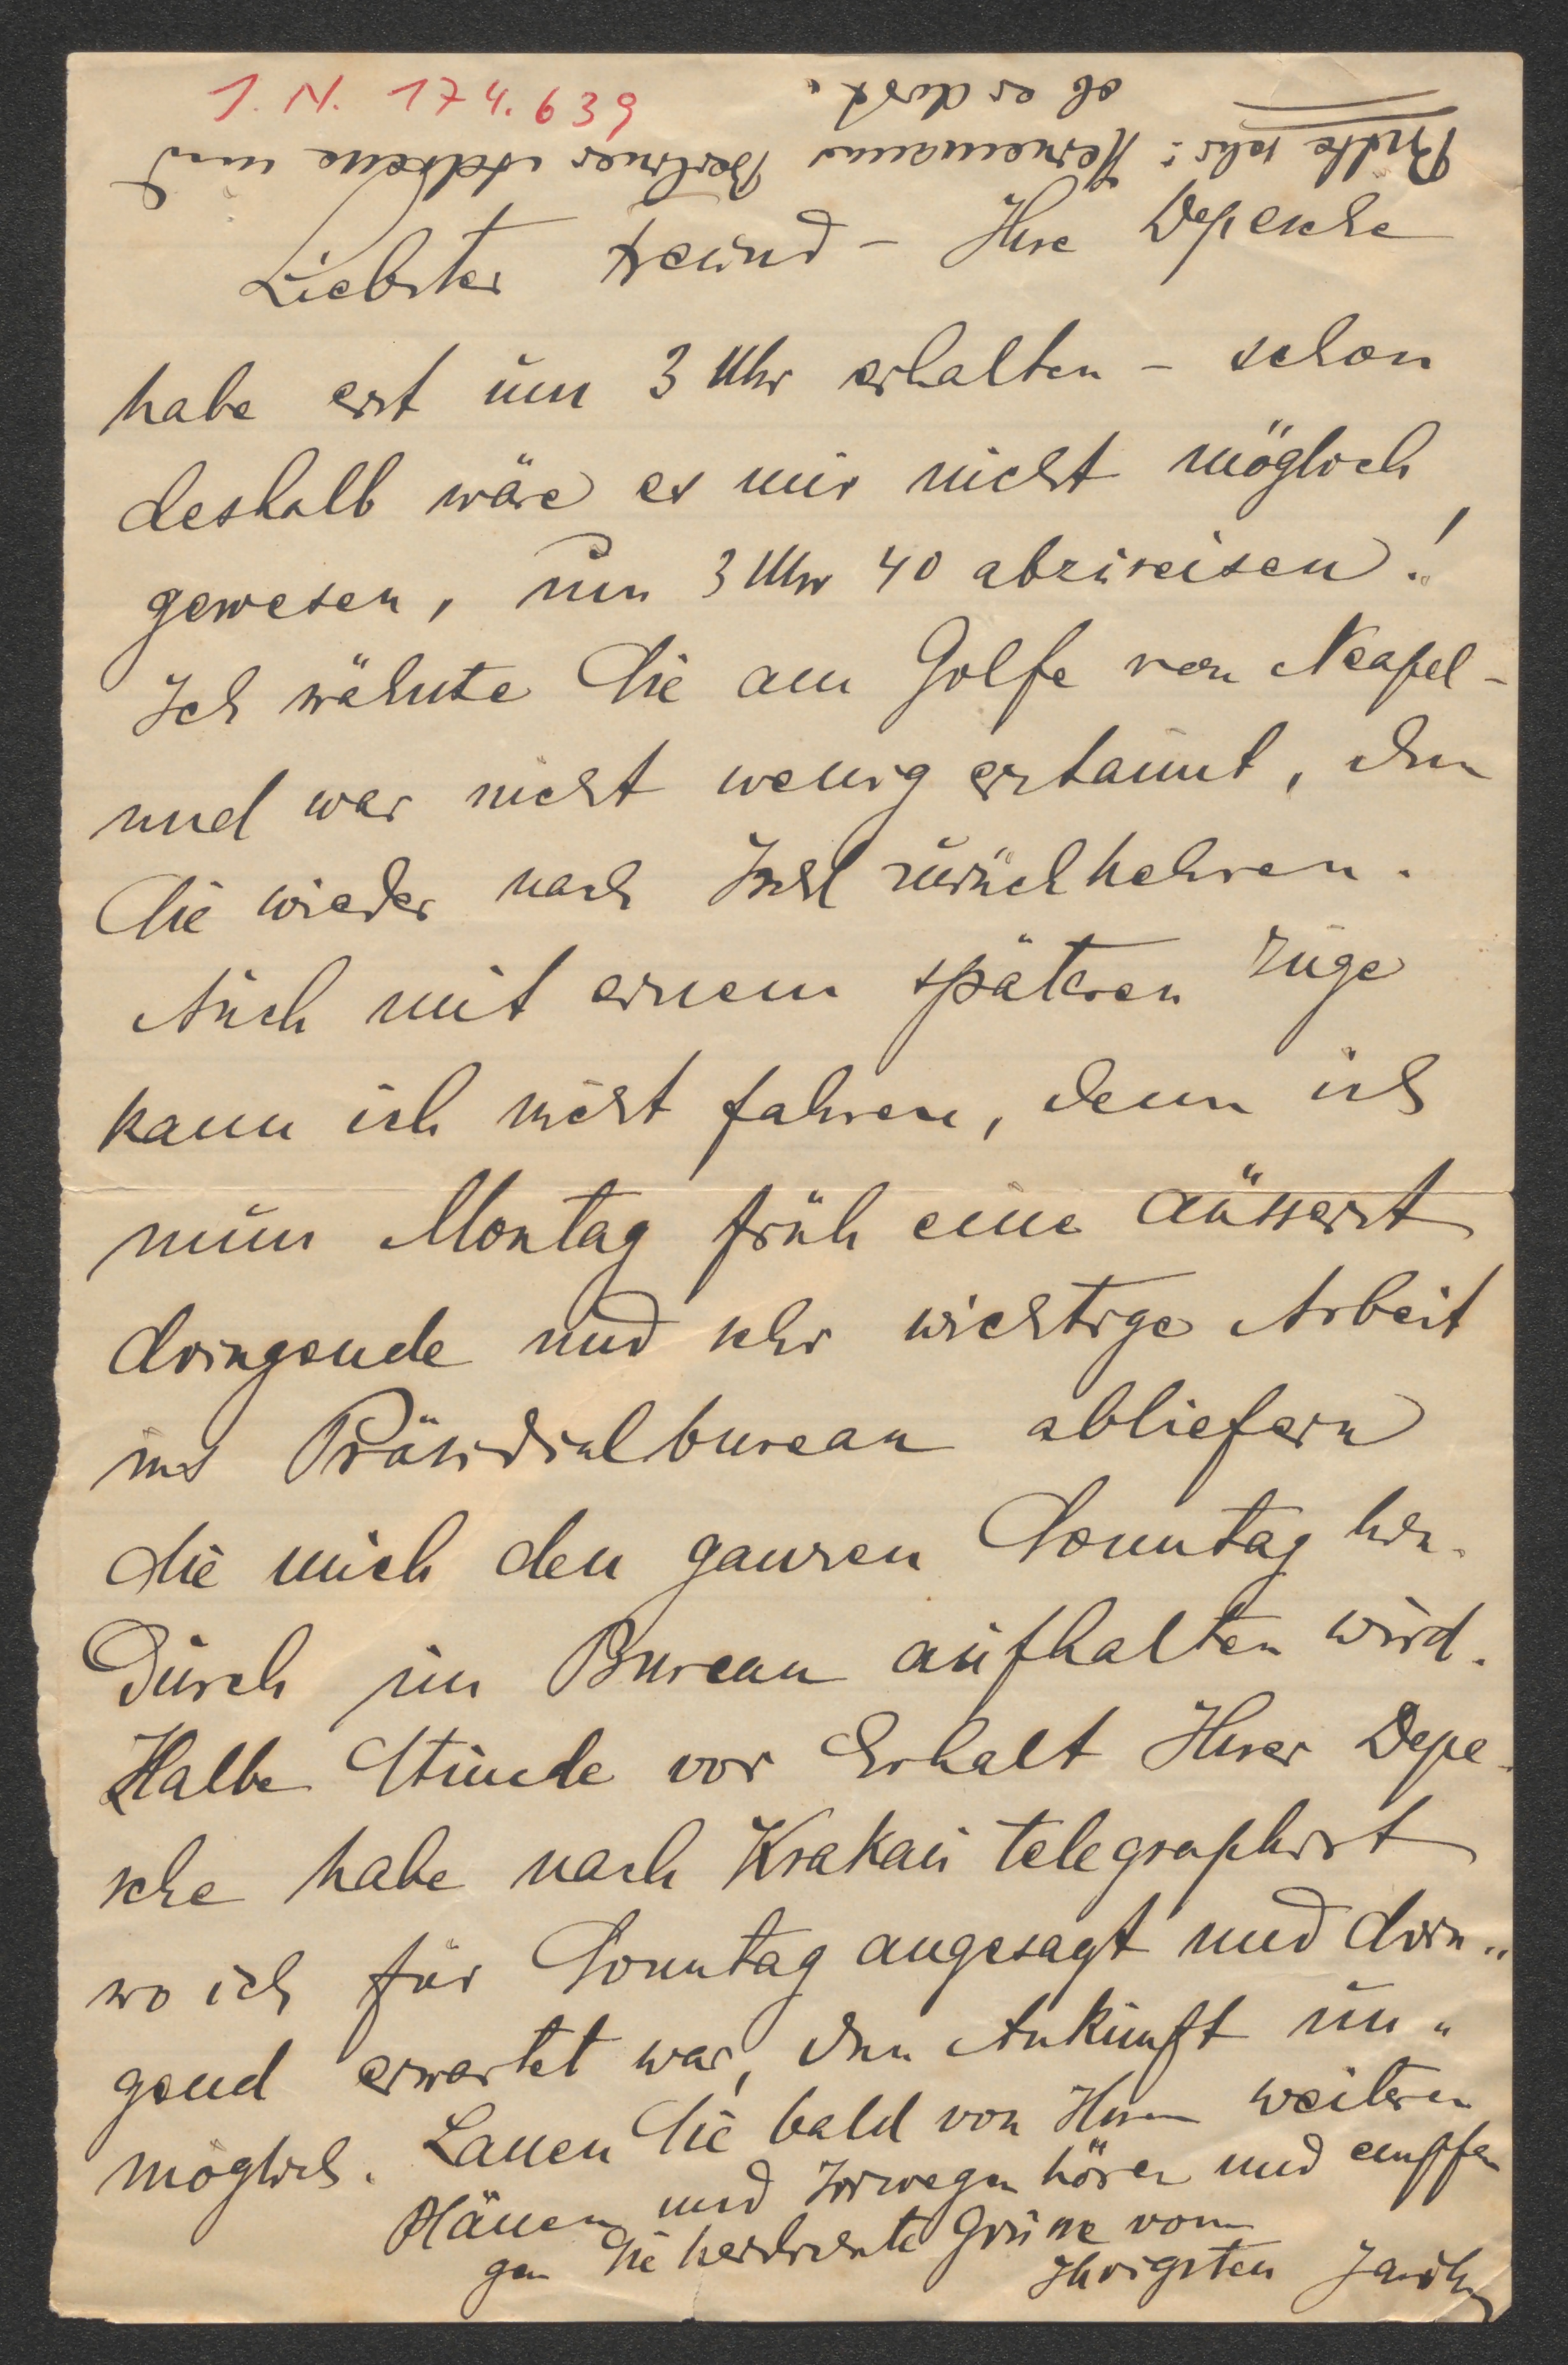 J. N. 174.639
Bitte sehr: Hornemanns Berliner Adresse und
ob er dort.
Liebster Freund – Ihre Depesche
habe erst um 3 Uhr erhalten – schon
deshalb wäre es mir nicht möglich
gewesen, um 3 Uhr 40 abzureisen!
Ich wähnte Sie am Golfe von Neapel –
und war nicht wenig erstaunt, dass
Sie wieder nach Ischl zurückkehren.
Auch mit einem späteren Zuge
kann ich nicht fahren, denn ich
muss Montag früh eine äusserst
dringende und sehr wichtige Arbeit
ins Präsidialbureau abliefern
die mich den ganzen Sonntag hin-
durch im Bureau aufhalten wird.
Halbe Stunde vor Erhalt Ihrer Depe-
sche habe nach Krakau telegraphirt
wo ich für Sonntag angesagt und drin-
gend erwartet war, dass Ankunft un-
möglich. Lassen Sie bald von Ihren weiteren
Plänen und hören und empfan
gen Sie herzlichste Grüsse vom
Ihrigsten